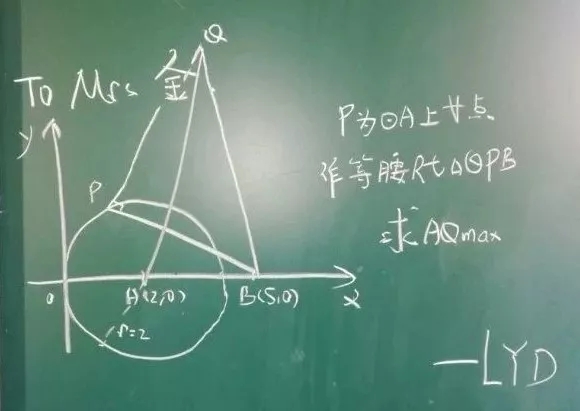 To Mrs 金
Q
y
P
P为⊙A上一点
作等腰Rt△QPB
求AQmax
0
A(2,0)
B(5,0)
x
r=2
—LYD